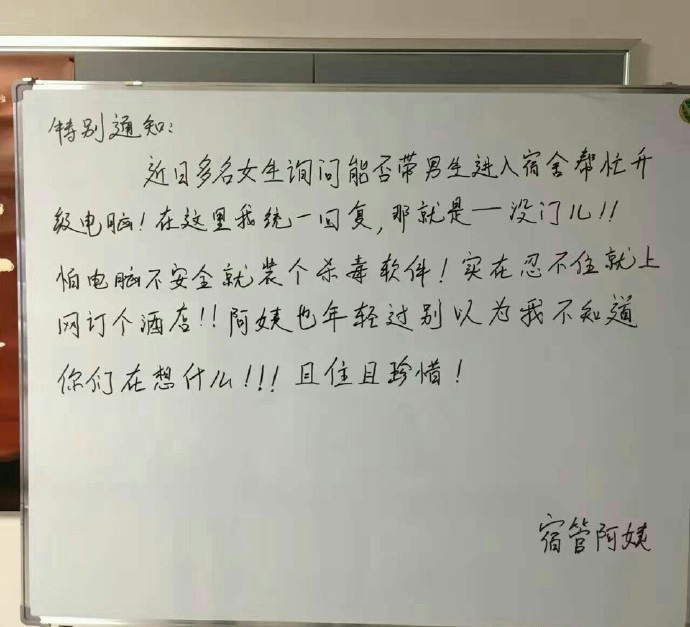 特别通知：
近日多名女生询问能否带男生进入宿舍帮忙升
级电脑！在这里我统一回复，那就是一没门儿！！
怕电脑不安全就装个杀毒软件！实在忍不住就上
网订个酒店！！阿姨也年轻过别以为我不知道
你们在想什么！！！且住且珍惜！
宿管阿姨